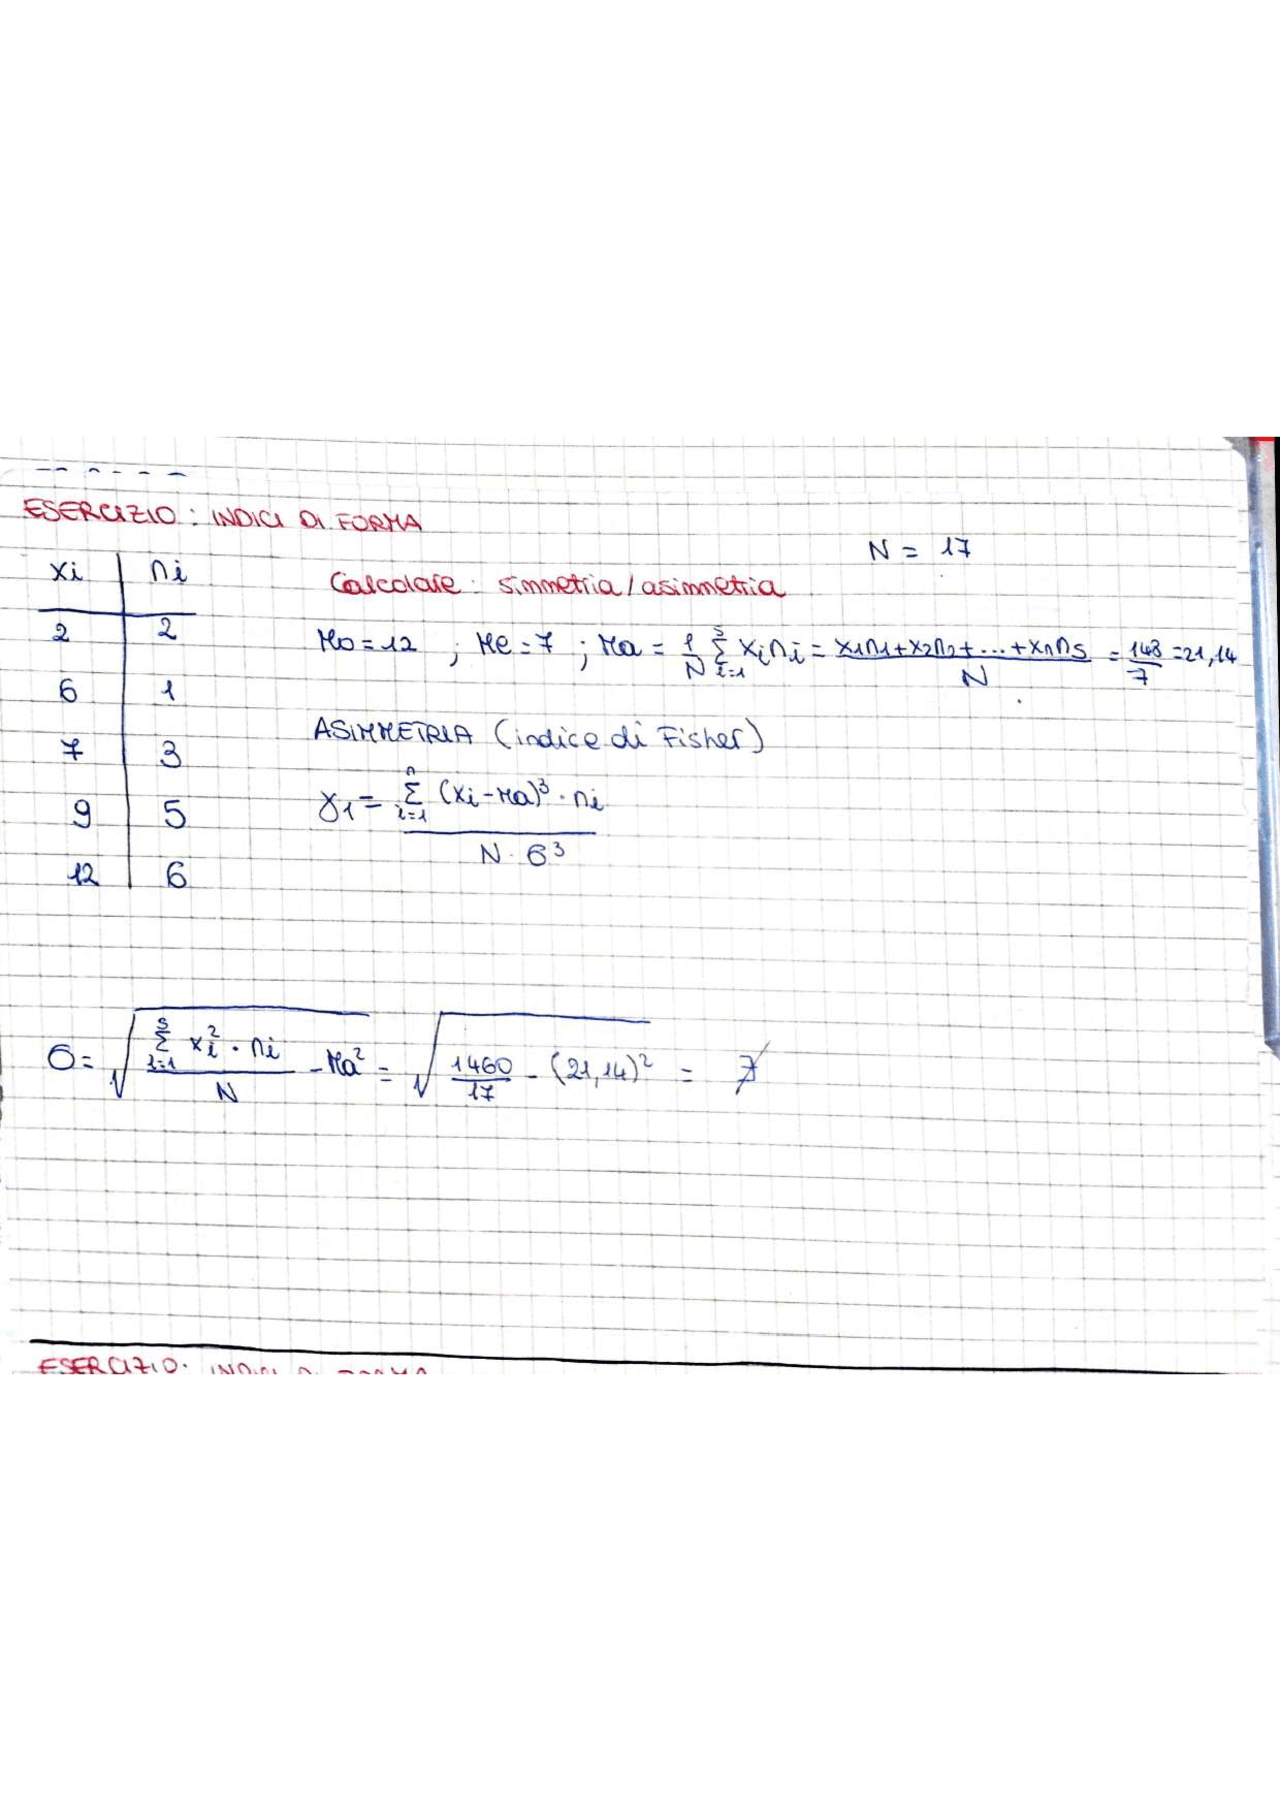 ESERCIZIO: INDICI DI FORMA
N = 17
xi | ni
Calcolare: simmetria/asimmetria
2 | 2
Mo=12 ; Me=7 ; Ma = 1/N Σ(i=1, s) xi ni = (x1n1+x2n2+...+xnns)/N = 148/7 = 21,14
6 | 1
ASIMMETRIA (indice di Fisher)
7 | 3
γ1 = Σ(i=1, n) (xi-Ma)³ · ni / N · σ³
9 | 5
12 | 6
σ = √( Σ(i=1, s) xi² · ni / N - Ma² ) = √( 1460/17 - (21,14)² ) = ∄
ESERCIZIO: INDICI DI FORMA